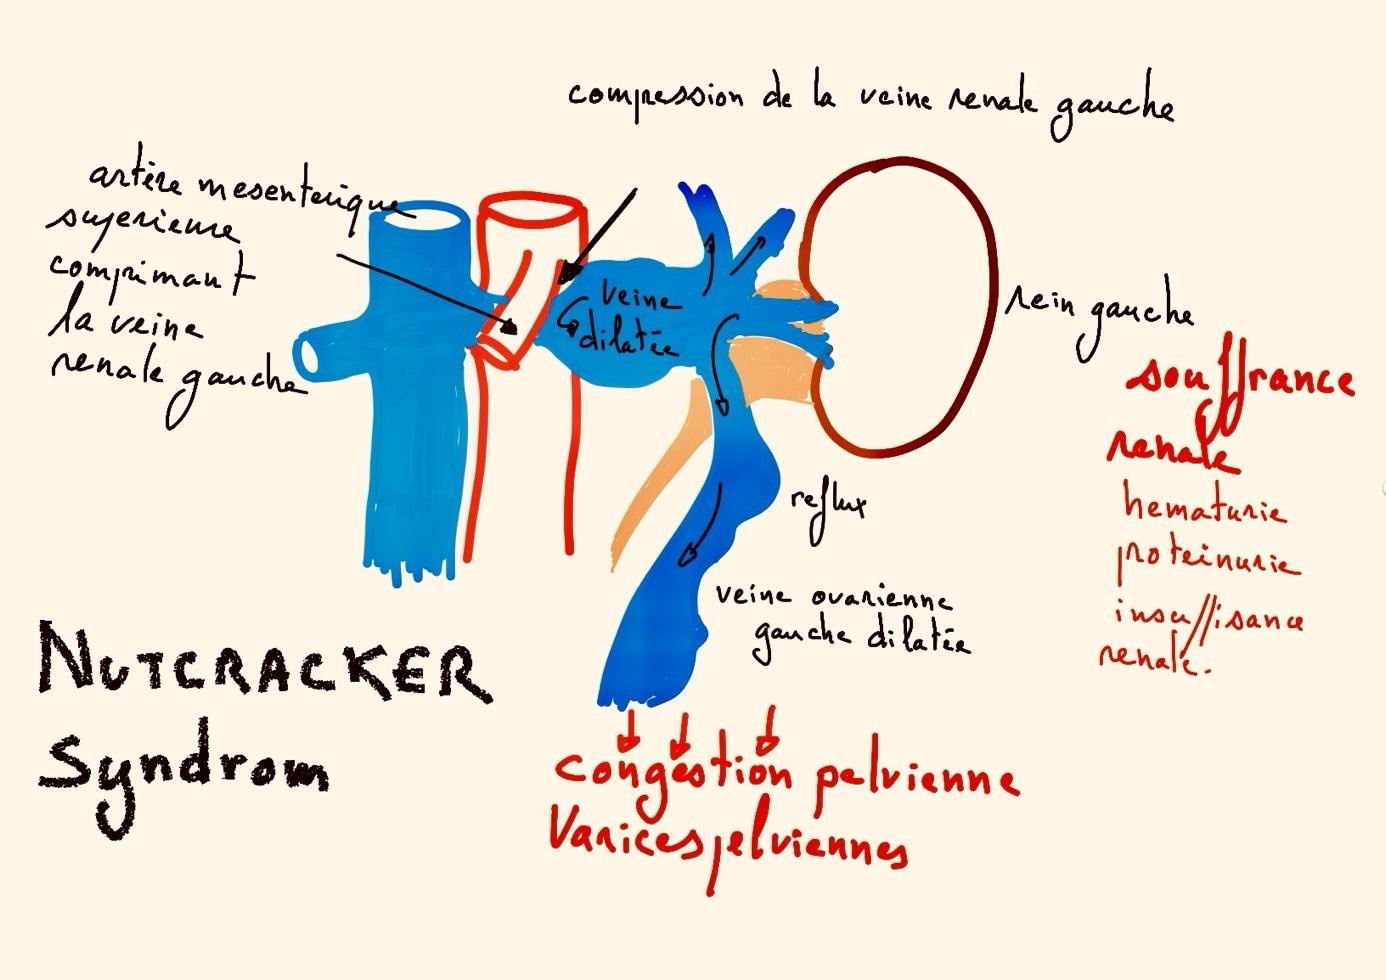 compression de la veine renale gauche
artère mesenterique
superieure
comprimant
la veine
renale gauche
veine
dilatée
rein gauche
souffrance
renale
hematurie
proteinurie
insuffisance
renale.
reflux
veine ovarienne
gauche dilatée
NUTCRACKER
Syndrom
congestion pelvienne
Varices pelviennes